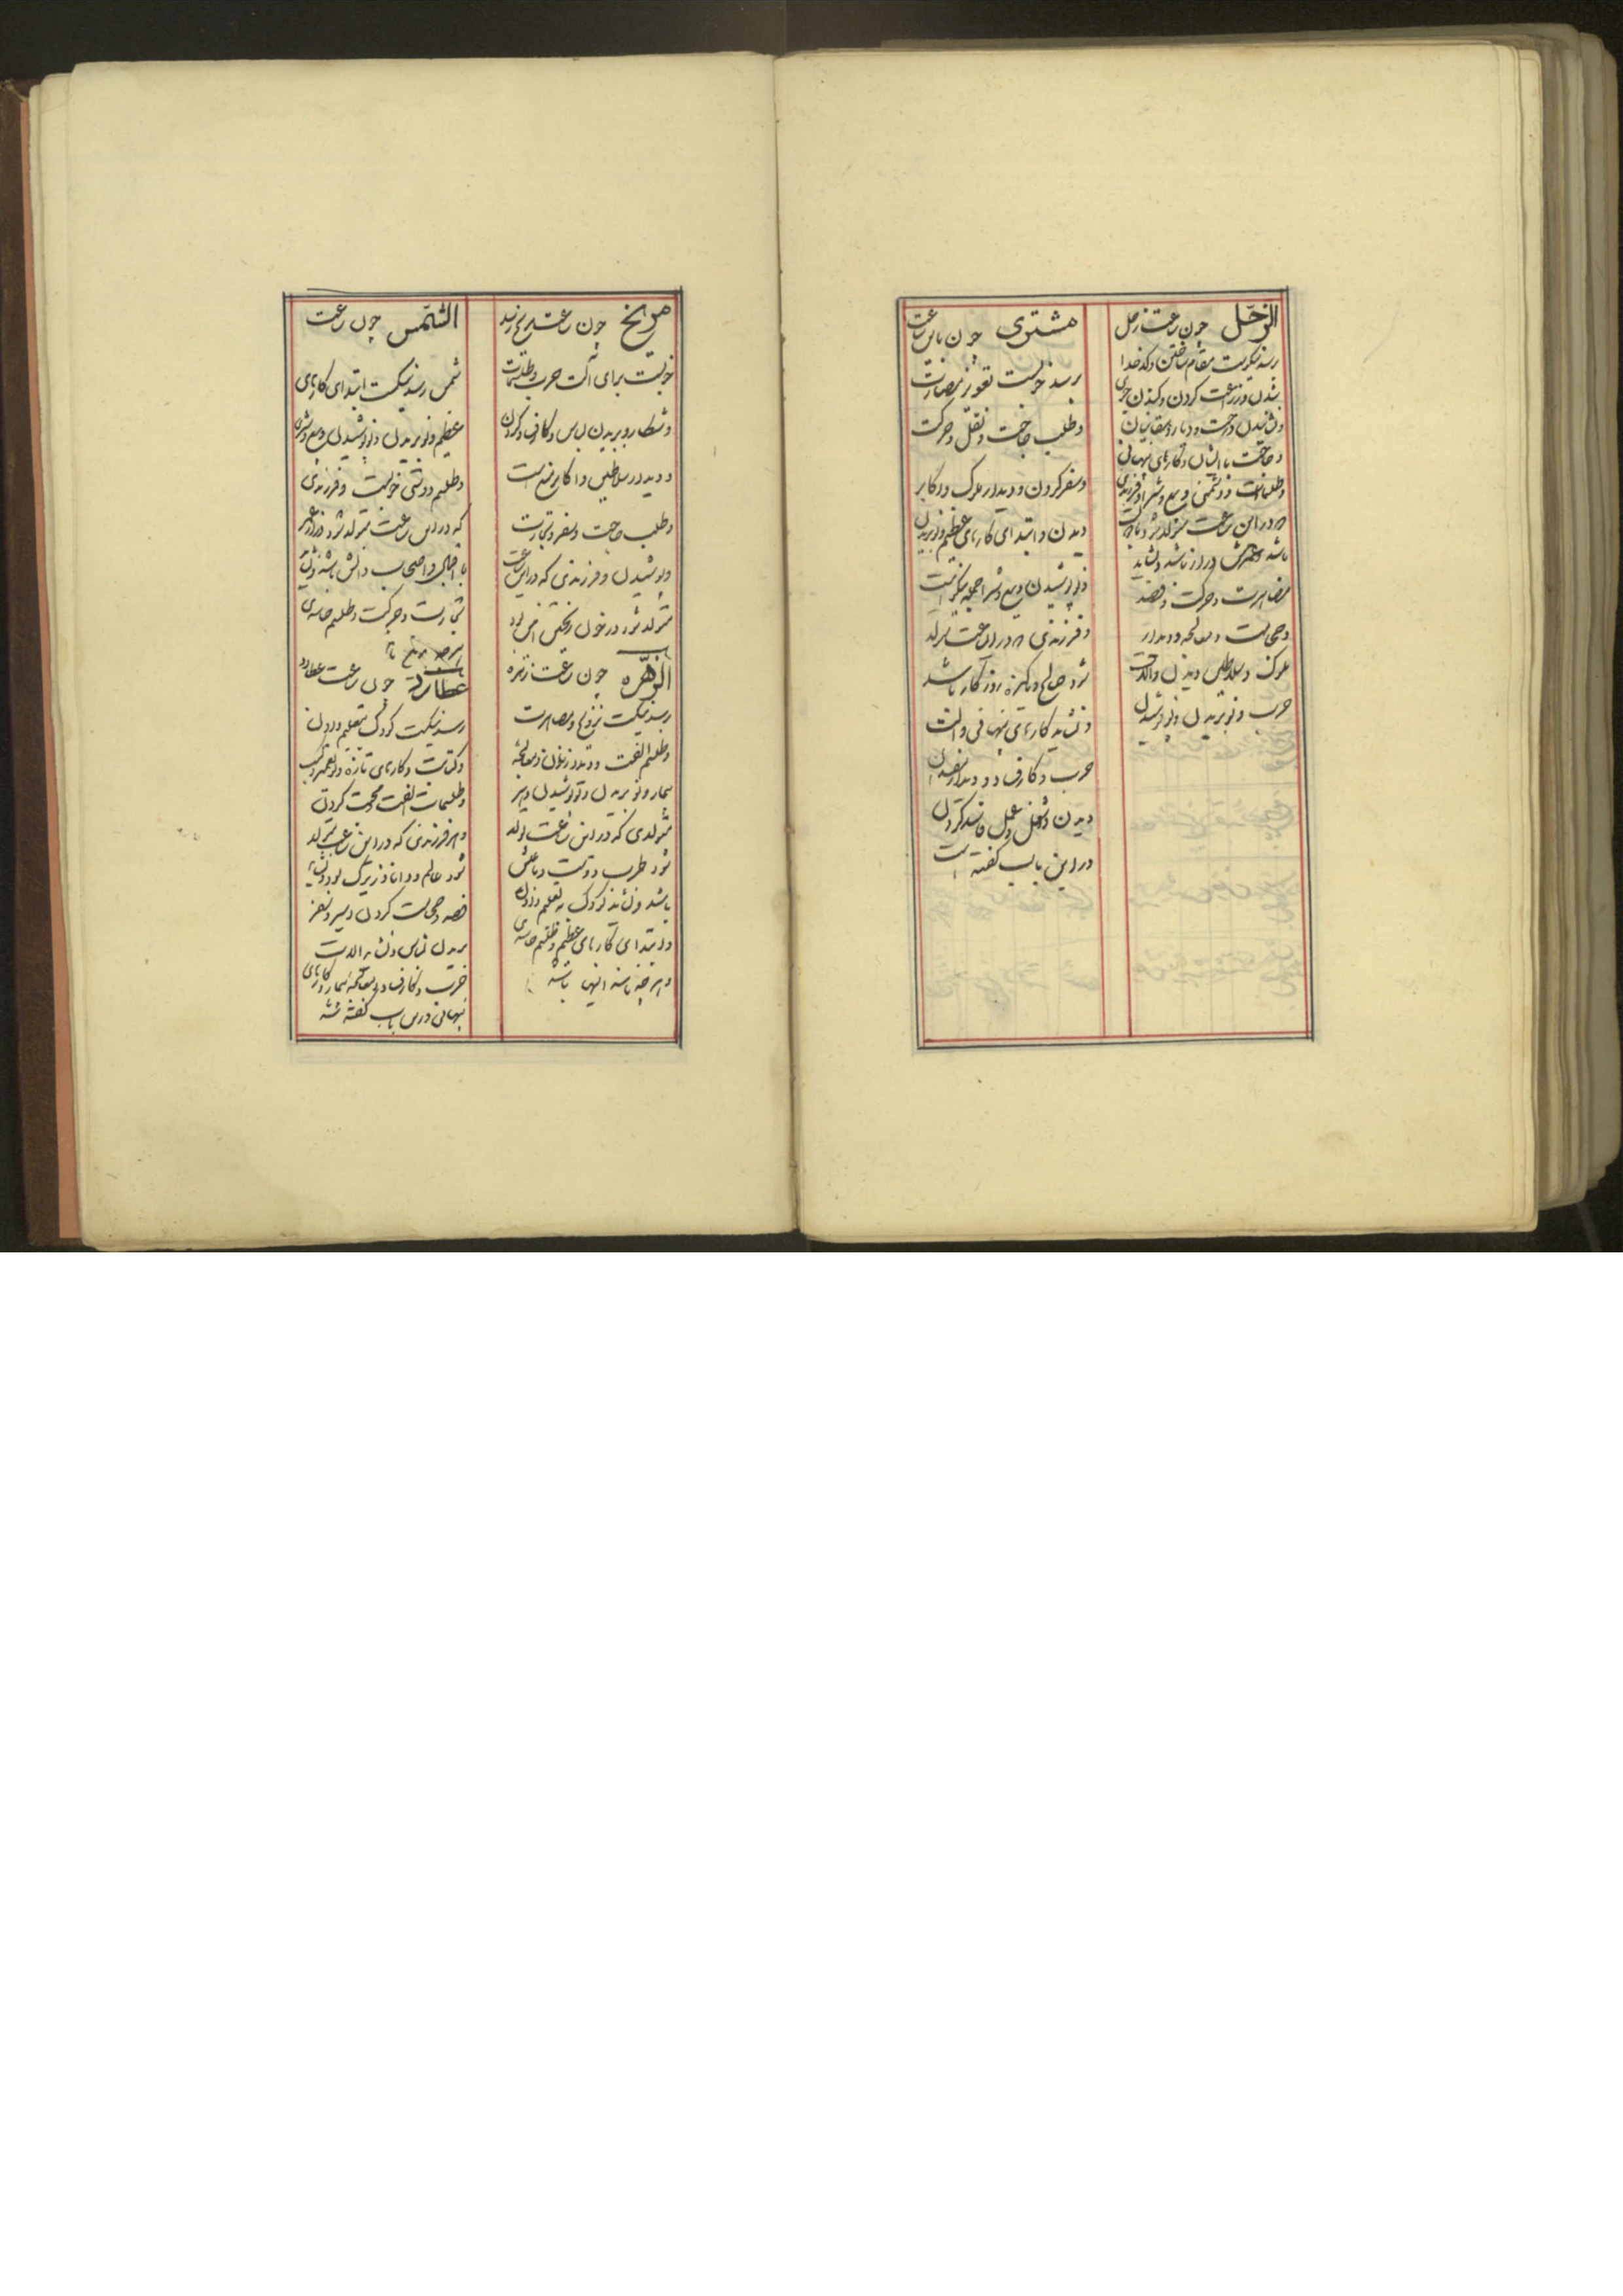 الزحل چون ساعت زحل
رسد نیکوست مقام ساختن و کدخدا
شدن و زراعت کردن و کندن جوی
و نشانیدن درخت و دیدار دهقانیان
و حاجت با ایشان و کارهای پنهانی
و طلسمات و دشمنی و بیع و شرا و فرزندی
که در این ساعت متولد شود
باشد و عمرش دراز باشد و نشاید
مصاهرت و حرکت و فصد
و حجامت و معالجه و دیدار
ملوک و سلاطین دیدن و آلات
حرب و نو بریدن و نو پوشیدن
مشتری چون باین ساعت
رسد خوبست تعویذ مصاهرت
و طلب حاجت و نقل و حرکت
و سفر کردن و دیدار ملوک و اکابر
دیدن و ابتدای کارهای عظیم و نو بریدن
و نو پوشیدن و بیع و شرا جمله نیکوست
و فرزندی که در این ساعت متولد
شود صالح و پاکیزه روزگار باشد
و نشاید کارهای پنهانی و آلت
حرب و کارزار و دیدار
دیدن و شغل و عمل فاسد کردن
در این باب گفته است
مریخ چون ساعت مریخ رسد
خوبست برای آلت حرب و طلسمات
و شکار و بریدن لباس و کردن
و دیدار سلاطین و اکابر
و طلب حاجت و سفر و تجارت
و پوشیدن و فرزندی که در این ساعت
متولد شود در خون ریختن
الزهره چون ساعت زهره
رسد نیکست تزویج و مصاهرت
و طلسم الفت و دیدار زنان و معالجه
بیمار و نو بریدن و نو پوشیدن و هر
متولدی که در این ساعت تولد
شود طرب دوست و عیاش
باشد و نشاید کودک به تعلیم دادن
و ابتدای کارهای عظیم و طلسم جدائی
و هر چه مانند اینها باشد
الشمس چون ساعت
شمس رسد نیکست ابتدای کارهای
عظیم و نو بریدن و نو پوشیدن و بیع و شری
و طلسم دوستی خوبست و فرزندی
که در این ساعت متولد شود دراز عمر
با اقبال و صاحب دانش باشد و نشاید
تجارت و حرکت و طلسم جدائی

عطارد چون ساعت عطارد
رسد نیکست کودک بتعلیم دادن
و کتابت و کارهای تازه و تعمیر
و طلسمات الفت و محبت کردن
و هر فرزندی که در این ساعت متولد
شود عالم و دانا و زیرک بود و نشاید
فصد و حجامت کردن و سیر و سفر
بریدن لباس و نشاید آلات
حرب و کارزار و معالجه بیمار و کارهای
پنهانی در این باب گفته شد